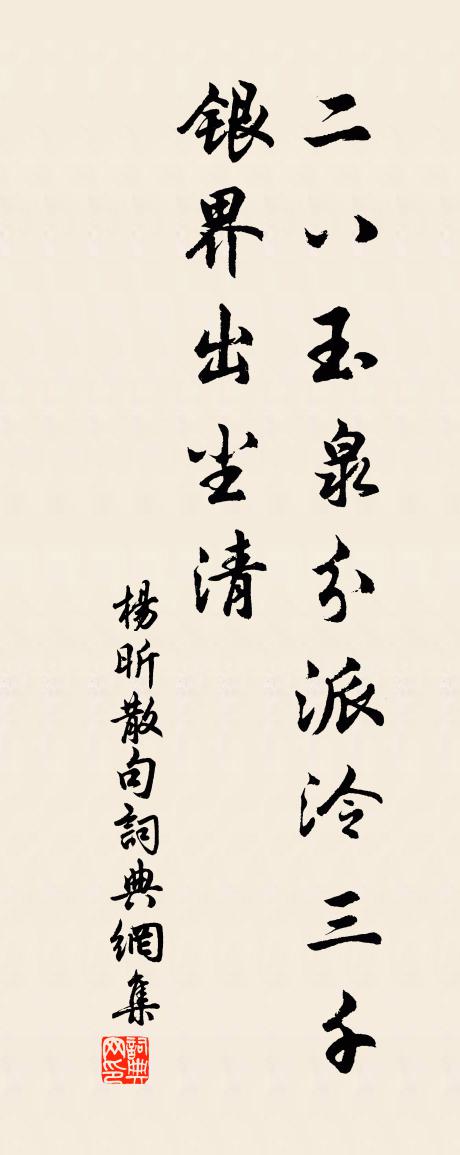 二八玉泉分派泠三千
銀界出尘清
楊昕散句詞典網集
詞典网印